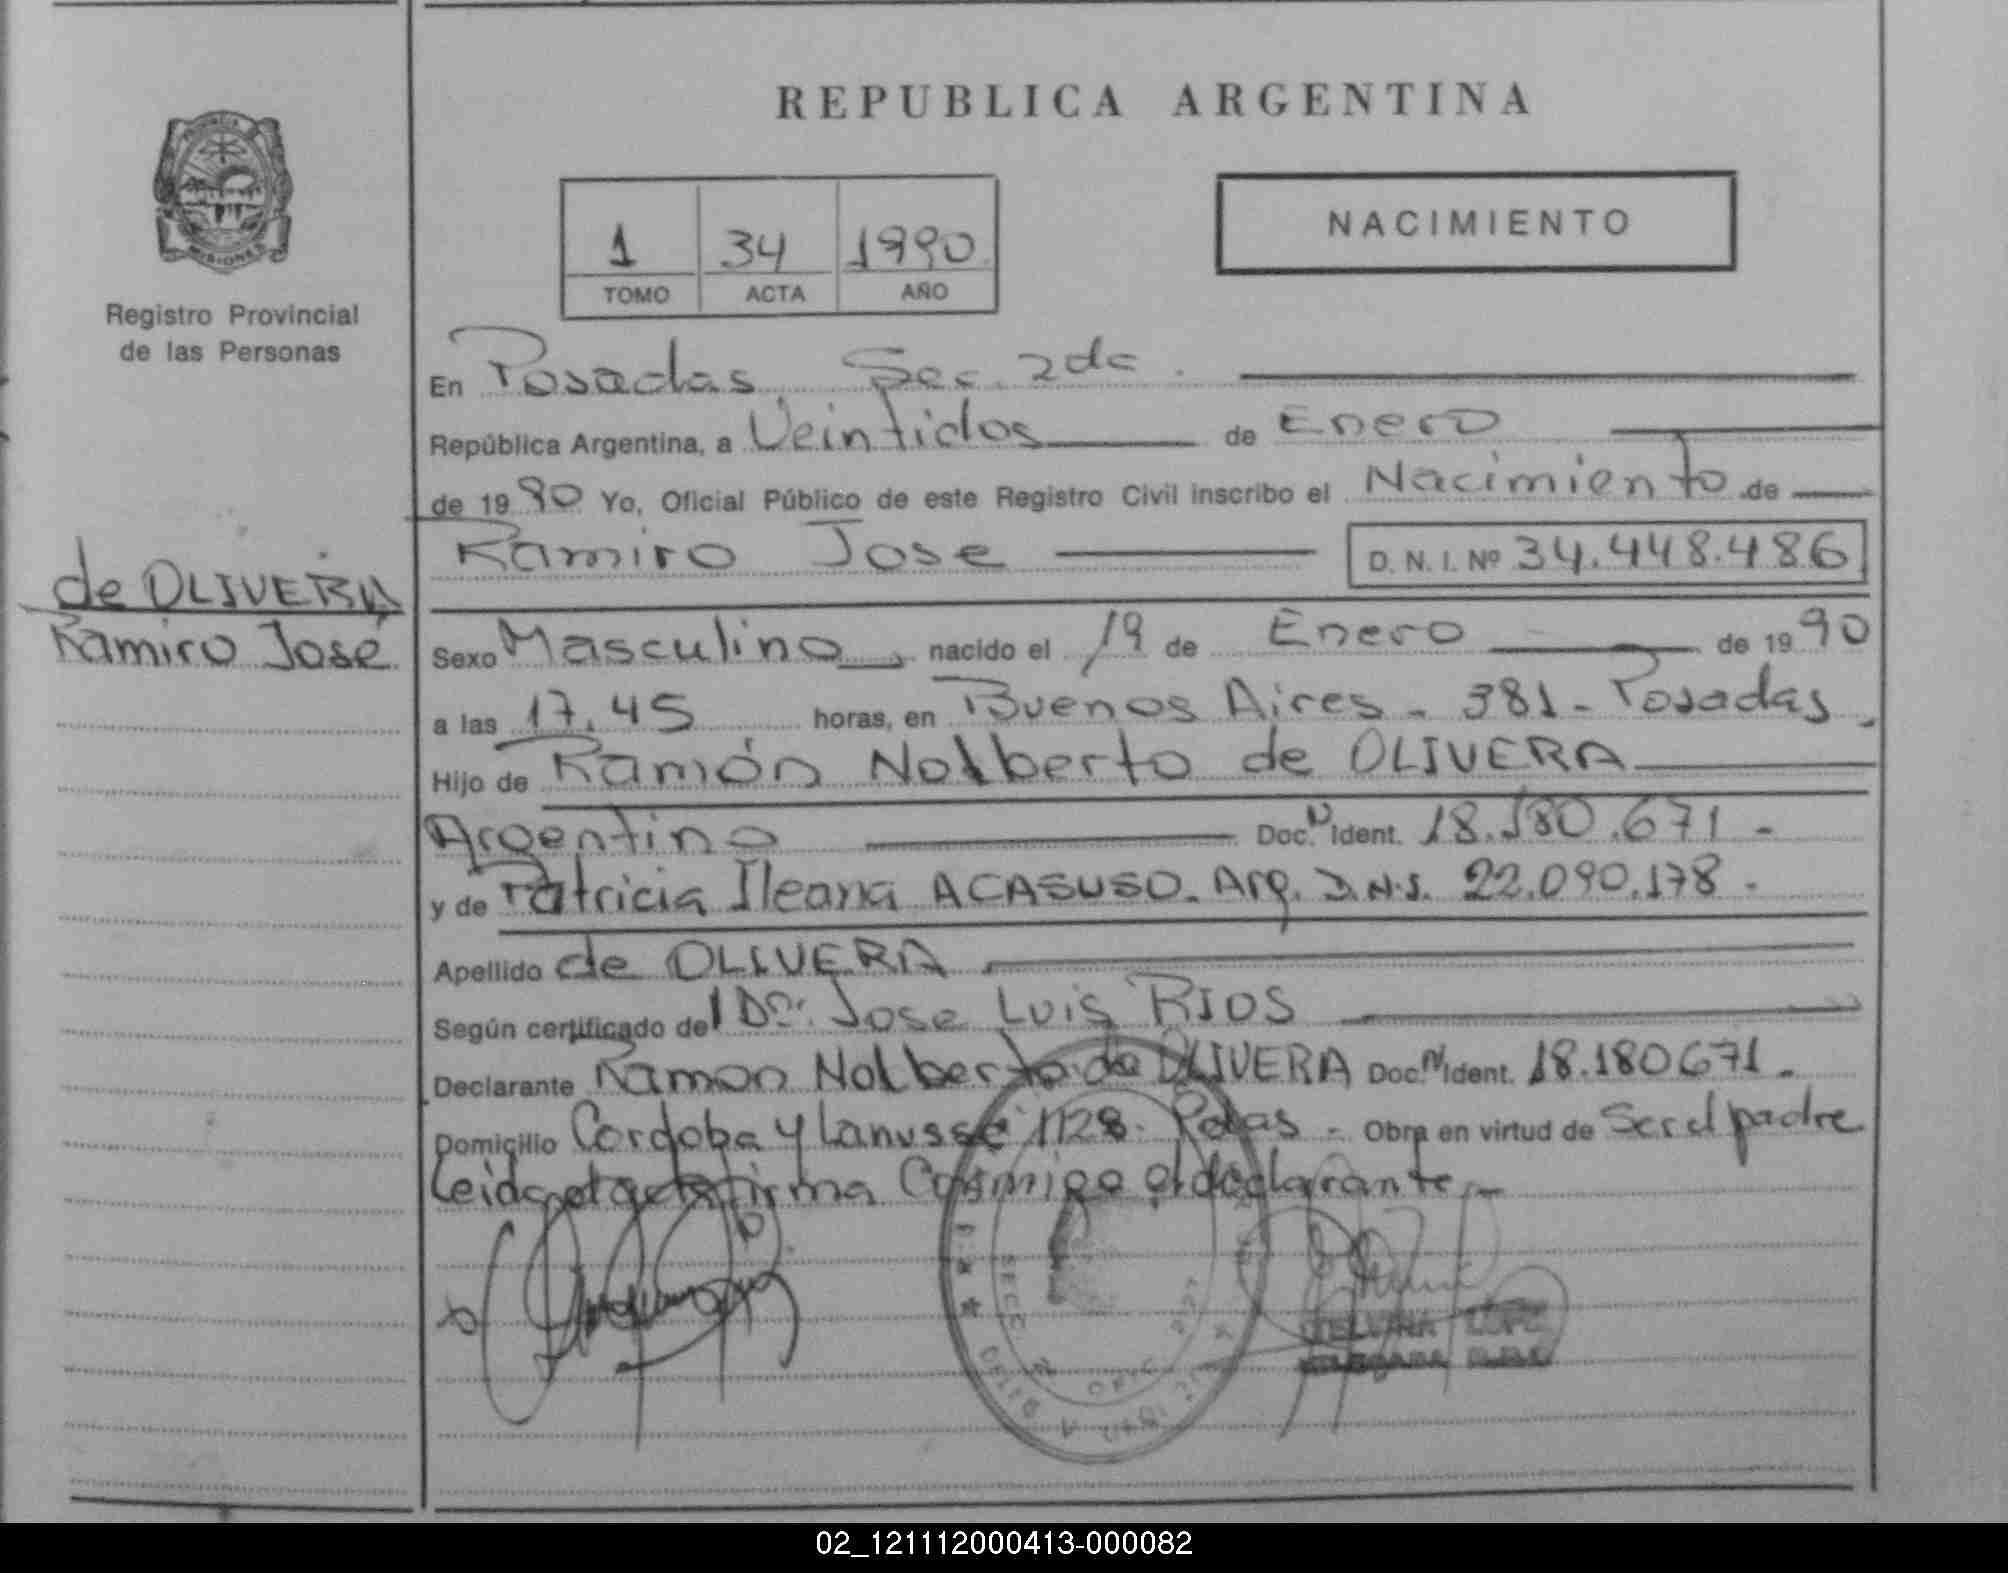 REPUBLICA ARGENTINA
PROVINCIA
MISIONES
Registro Provincial
de las Personas
1 34 1990
TOMO ACTA AÑO
NACIMIENTO
En Posadas Sec. 2da.
República Argentina, a Veintidos de Enero
de 1990 Yo, Oficial Público de este Registro Civil inscribo el Nacimiento de
Ramiro Jose D. N. I. Nº 34.448.486
de OLIVERA
Ramiro José
Sexo Masculino, nacido el 19 de Enero de 1990
a las 17.45 horas, en Buenos Aires - 381 - Posadas.
Hijo de Ramón Nolberto de OLIVERA
Argentino Doc. N Ident. 18.180.671 -
y de Patricia Ileana ACASUSO. Arg. D.N.I. 22.090.178.
Apellido de OLIVERA
Según certificado del Dr. Jose Luis RIOS
Declarante Ramon Nolberto de OLIVERA Doc. N Ident. 18.180671.
Domicilio Cordoba y Lanusse 1128. Pdas. Obra en virtud de Ser el padre
Leida el acta firma Conmigo el declarante.-
LOPEZ
02_121112000413-000082